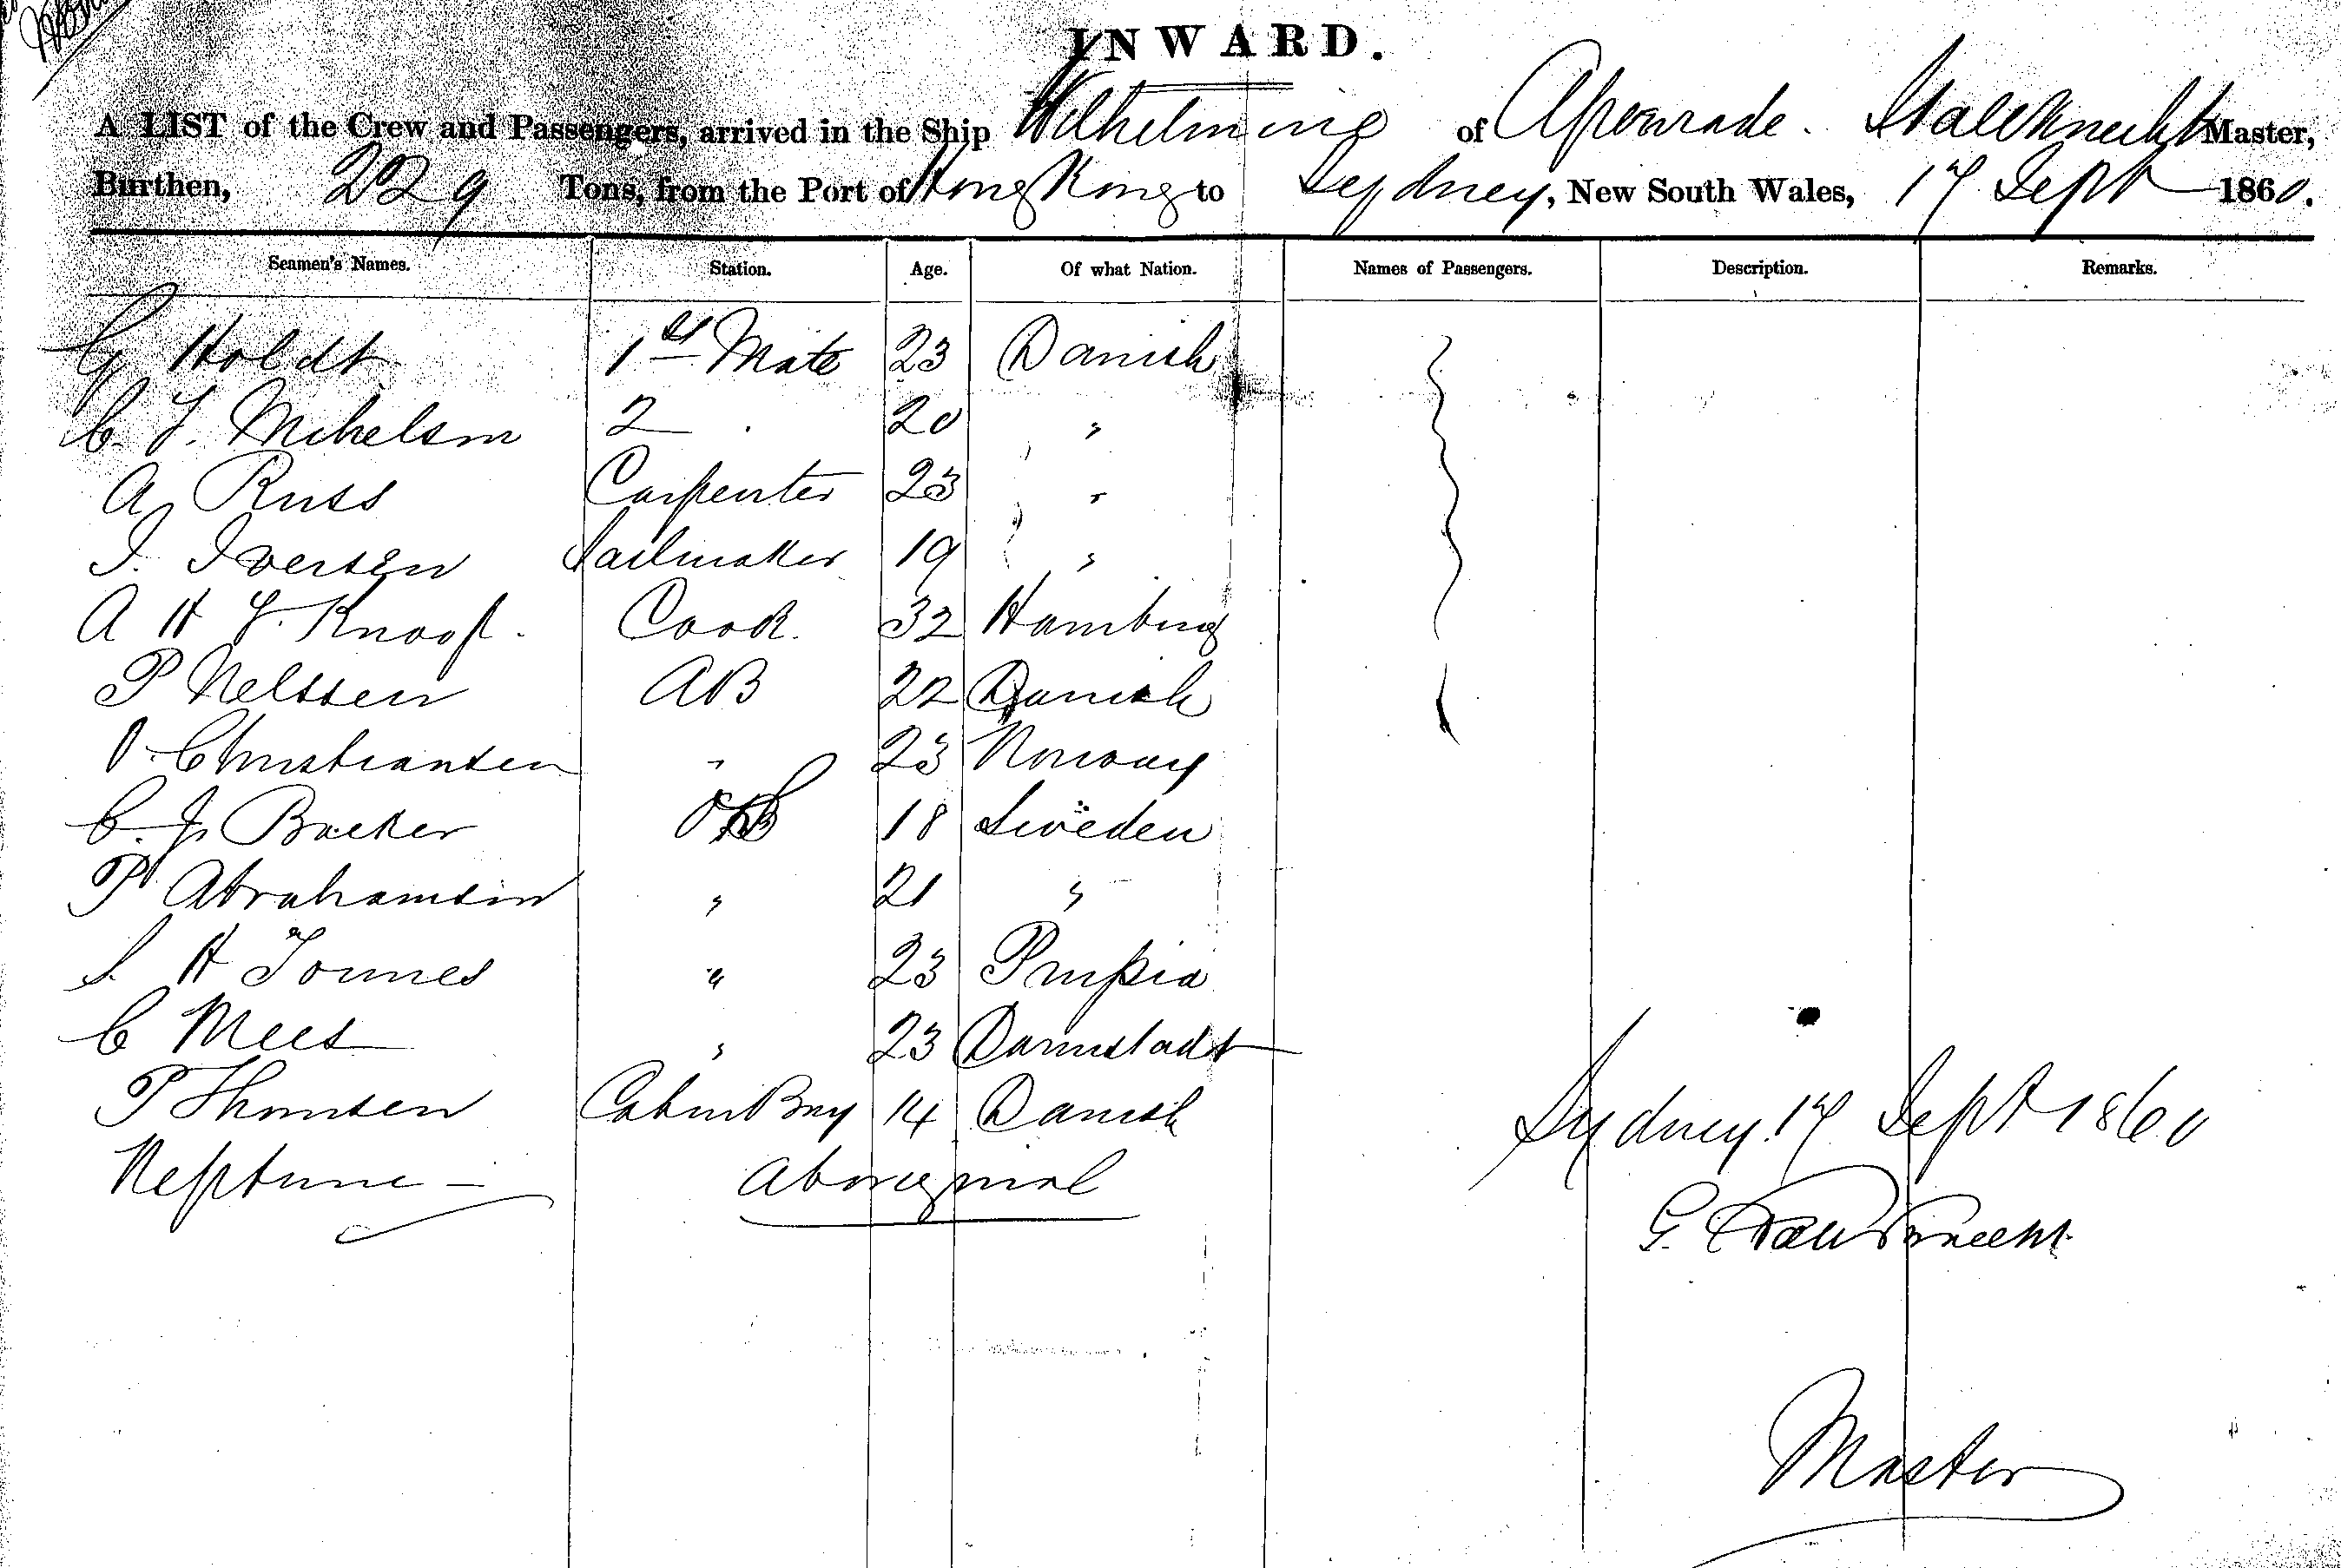 INWARD.
A LIST of the Crew and Passengers, arrived in the Ship Wilhelmine of Apenrade. Stallknecht Master,
Burthen, 229 Tons, from the Port of Hong Kong to Sydney, New South Wales, 17 Sept 1860.
Seamen's Names. Station. Age. Of what Nation. Names of Passengers. Description. Remarks.
G Holdt 1st Mate 23 Danish
C. J. Mikelsen 2 . 20 "
A Russ Carpenter 23 "
I. Iversen Sailmaker 19 "
A H J. Knoop. Cook. 32 Hamburg
P Nelssen AB 22 Danish
Christiansen " 23 Norway
C. J. Backer OS 18 Sweden
P Abrahamsen " 21 "
S. H Tonnes " 23 Prussia
C Mees " 23 Darmstadt
P Thomsen Cabin Boy 14 Danish
Neptune - Aboriginal
Sydney. 17 Sept 1860
G. Stallknecht
Master